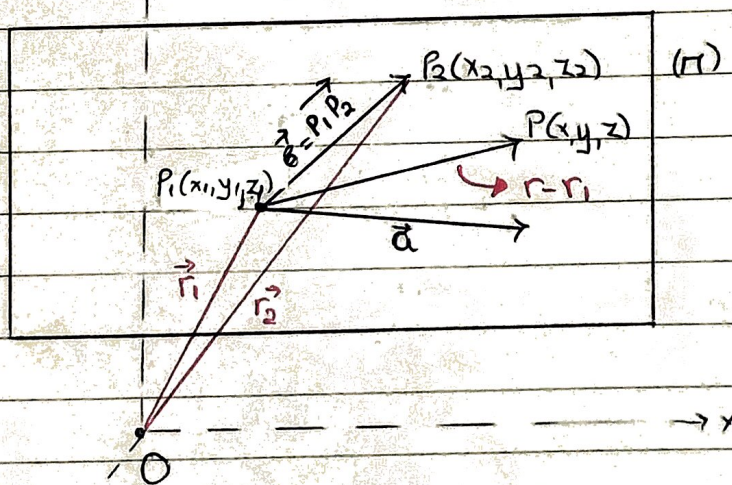 P2(x2,y2,z2)
(π)
б⃗=P1P2
P(x,y,z)
P1(x1,y1,z1)
r-r1
a⃗
r⃗1
r⃗2
O